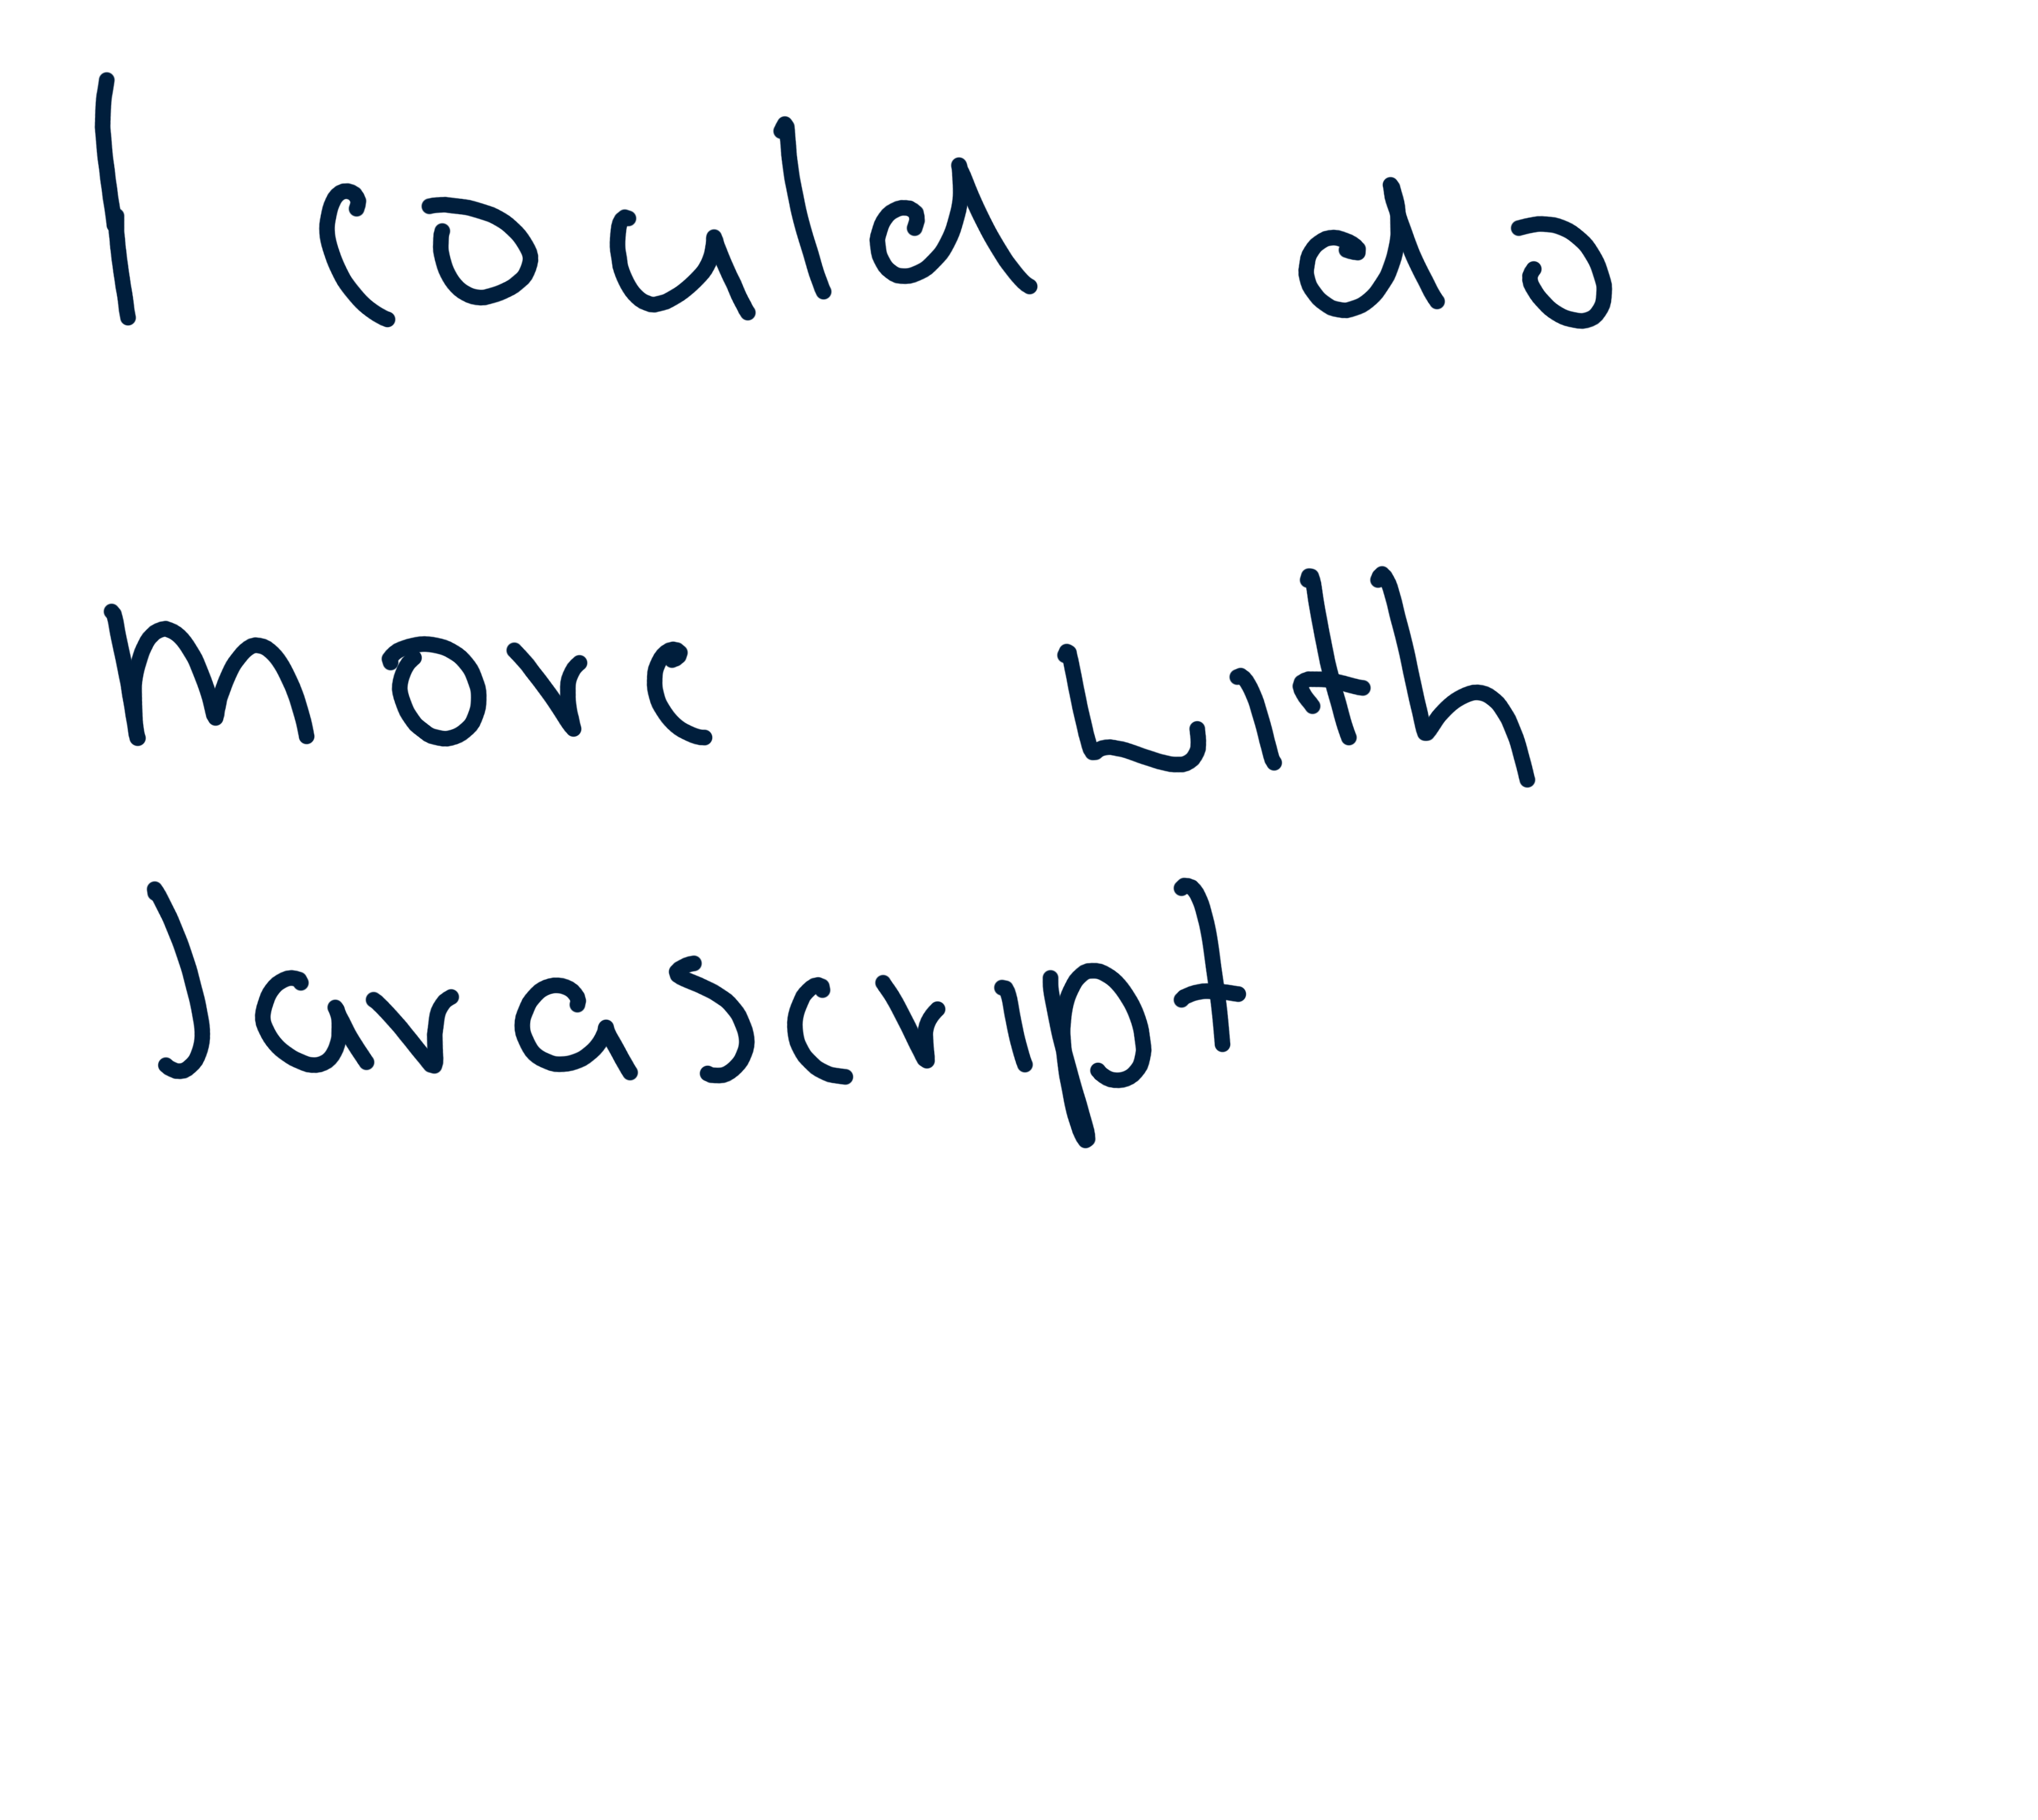 I could do
more with
Javascript